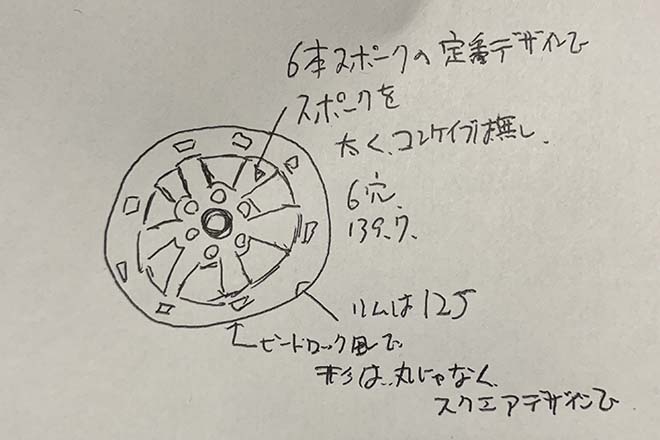 6本スポークの定番デザインで
スポークを
太く、コンケイブは無し.
6穴.
139.7.
リムは12J
ビードロック風で
形は丸じゃなく
スクエアデザインで